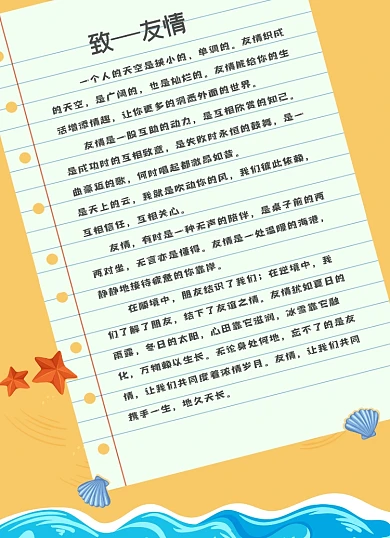 致一友情
一个人的天空是狭小的，单调的。友情织成
的天空，是广阔的，也是灿烂的。友情能给你的生
活增添情趣，让你更多的洞悉外面的世界。
友情是一股互助的动力，是互相欣赏的知己。
是成功时的互相致意，是失败时永恒的鼓舞，是一
曲豪迈的歌，何时唱起都激昂如昔。
是天上的云，我就是吹动你的风，我们彼此依赖，
互相信任，互相关心。
友情，有时是一种无声的陪伴，是桌子前的两
两对坐，无言亦是懂得。友情是一处温暖的海港，
静静地接待疲惫的你靠岸。
在顺境中，朋友结识了我们；在逆境中，我
们了解了朋友，结下了友谊之情。友情犹如夏日的
雨露，冬日的太阳，心田靠它滋润，冰雪靠它融
化，万物赖以生长。无论身处何地，忘不了的是友
情，让我们共同度着浓情岁月。友情，让我们共同
携手一生，地久天长。